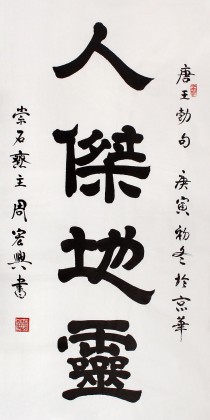 唐王勃句 庚寅初冬於京華
人傑地靈
崇石齋主周宏興書